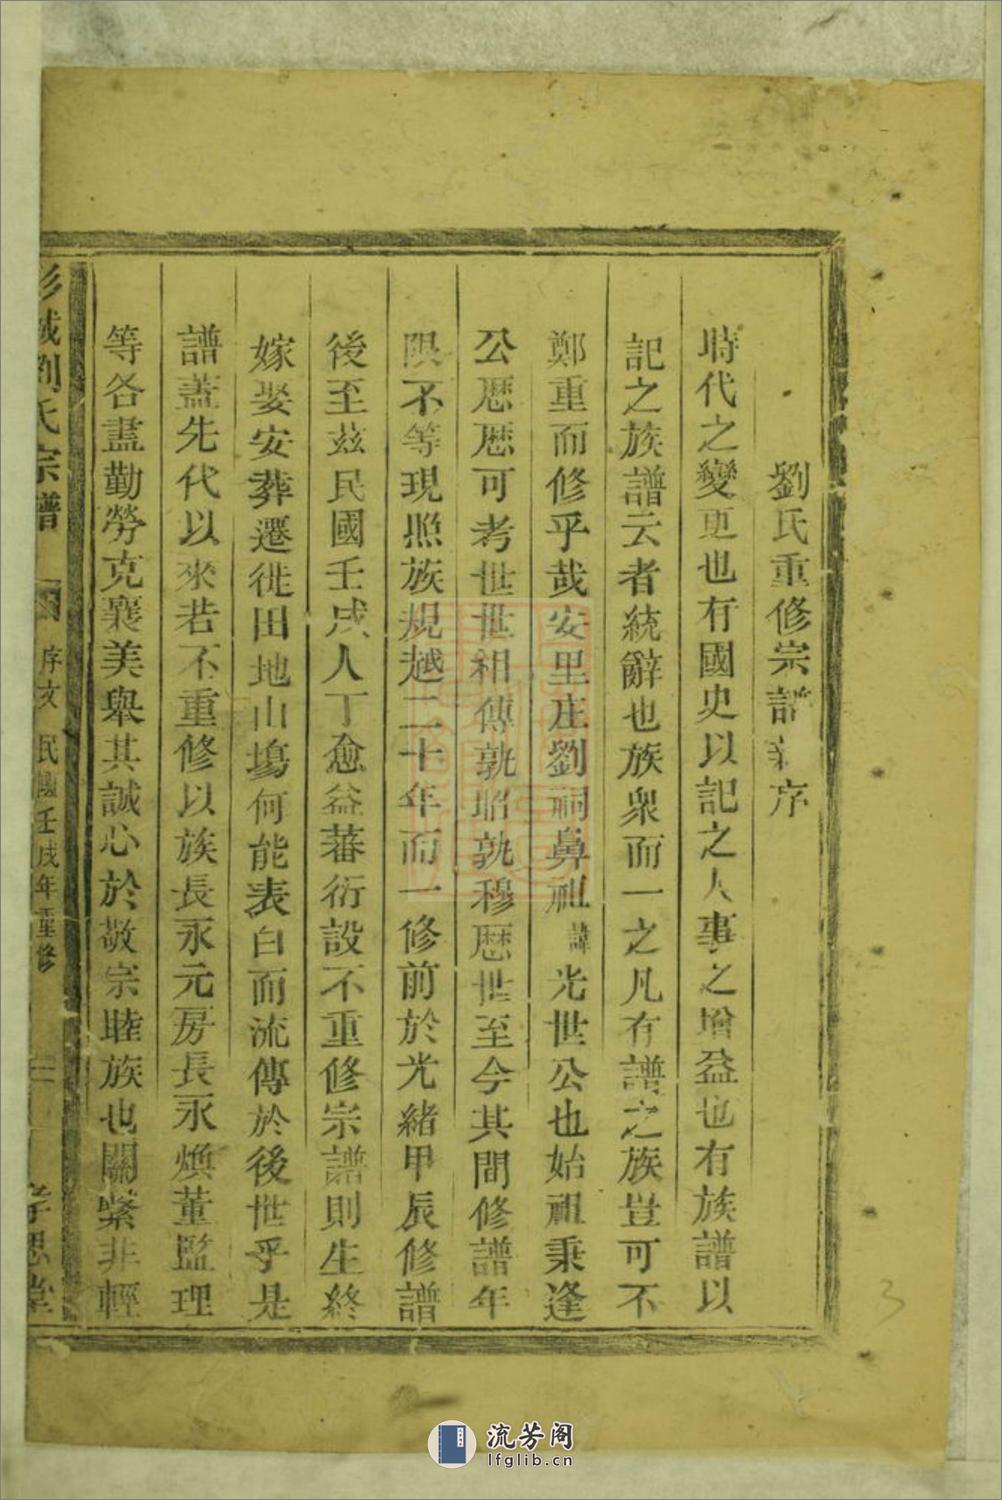 劉氏重修宗譜新序
時代之變更也有國史以記之人事之增益也有族譜以
記之族譜云者統辭也族衆而一之凡有譜之族豈可不
鄭重而修乎哉安里庄劉祠鼻祖諱光世公也始祖秉逢
公歷歷可考世世相傳孰昭孰穆歷世至今其間修譜年
限不等現照族規越二十年而一修前於光緒甲辰修譜
後至茲民國壬戌人丁愈益蕃衍設不重修宗譜則生終
嫁娶安葬遷徙田地山塲何能表白而流傳於後世乎是
譜蓋先代以來若不重修以族長永元房長永煥董監理
等各盡勤勞克襄美舉其誠心於敬宗睦族也關緊非輕
彭城劉氏宗譜 序文 民國壬戌年重修 孝思堂
3
流芳阁
lfglib.cn